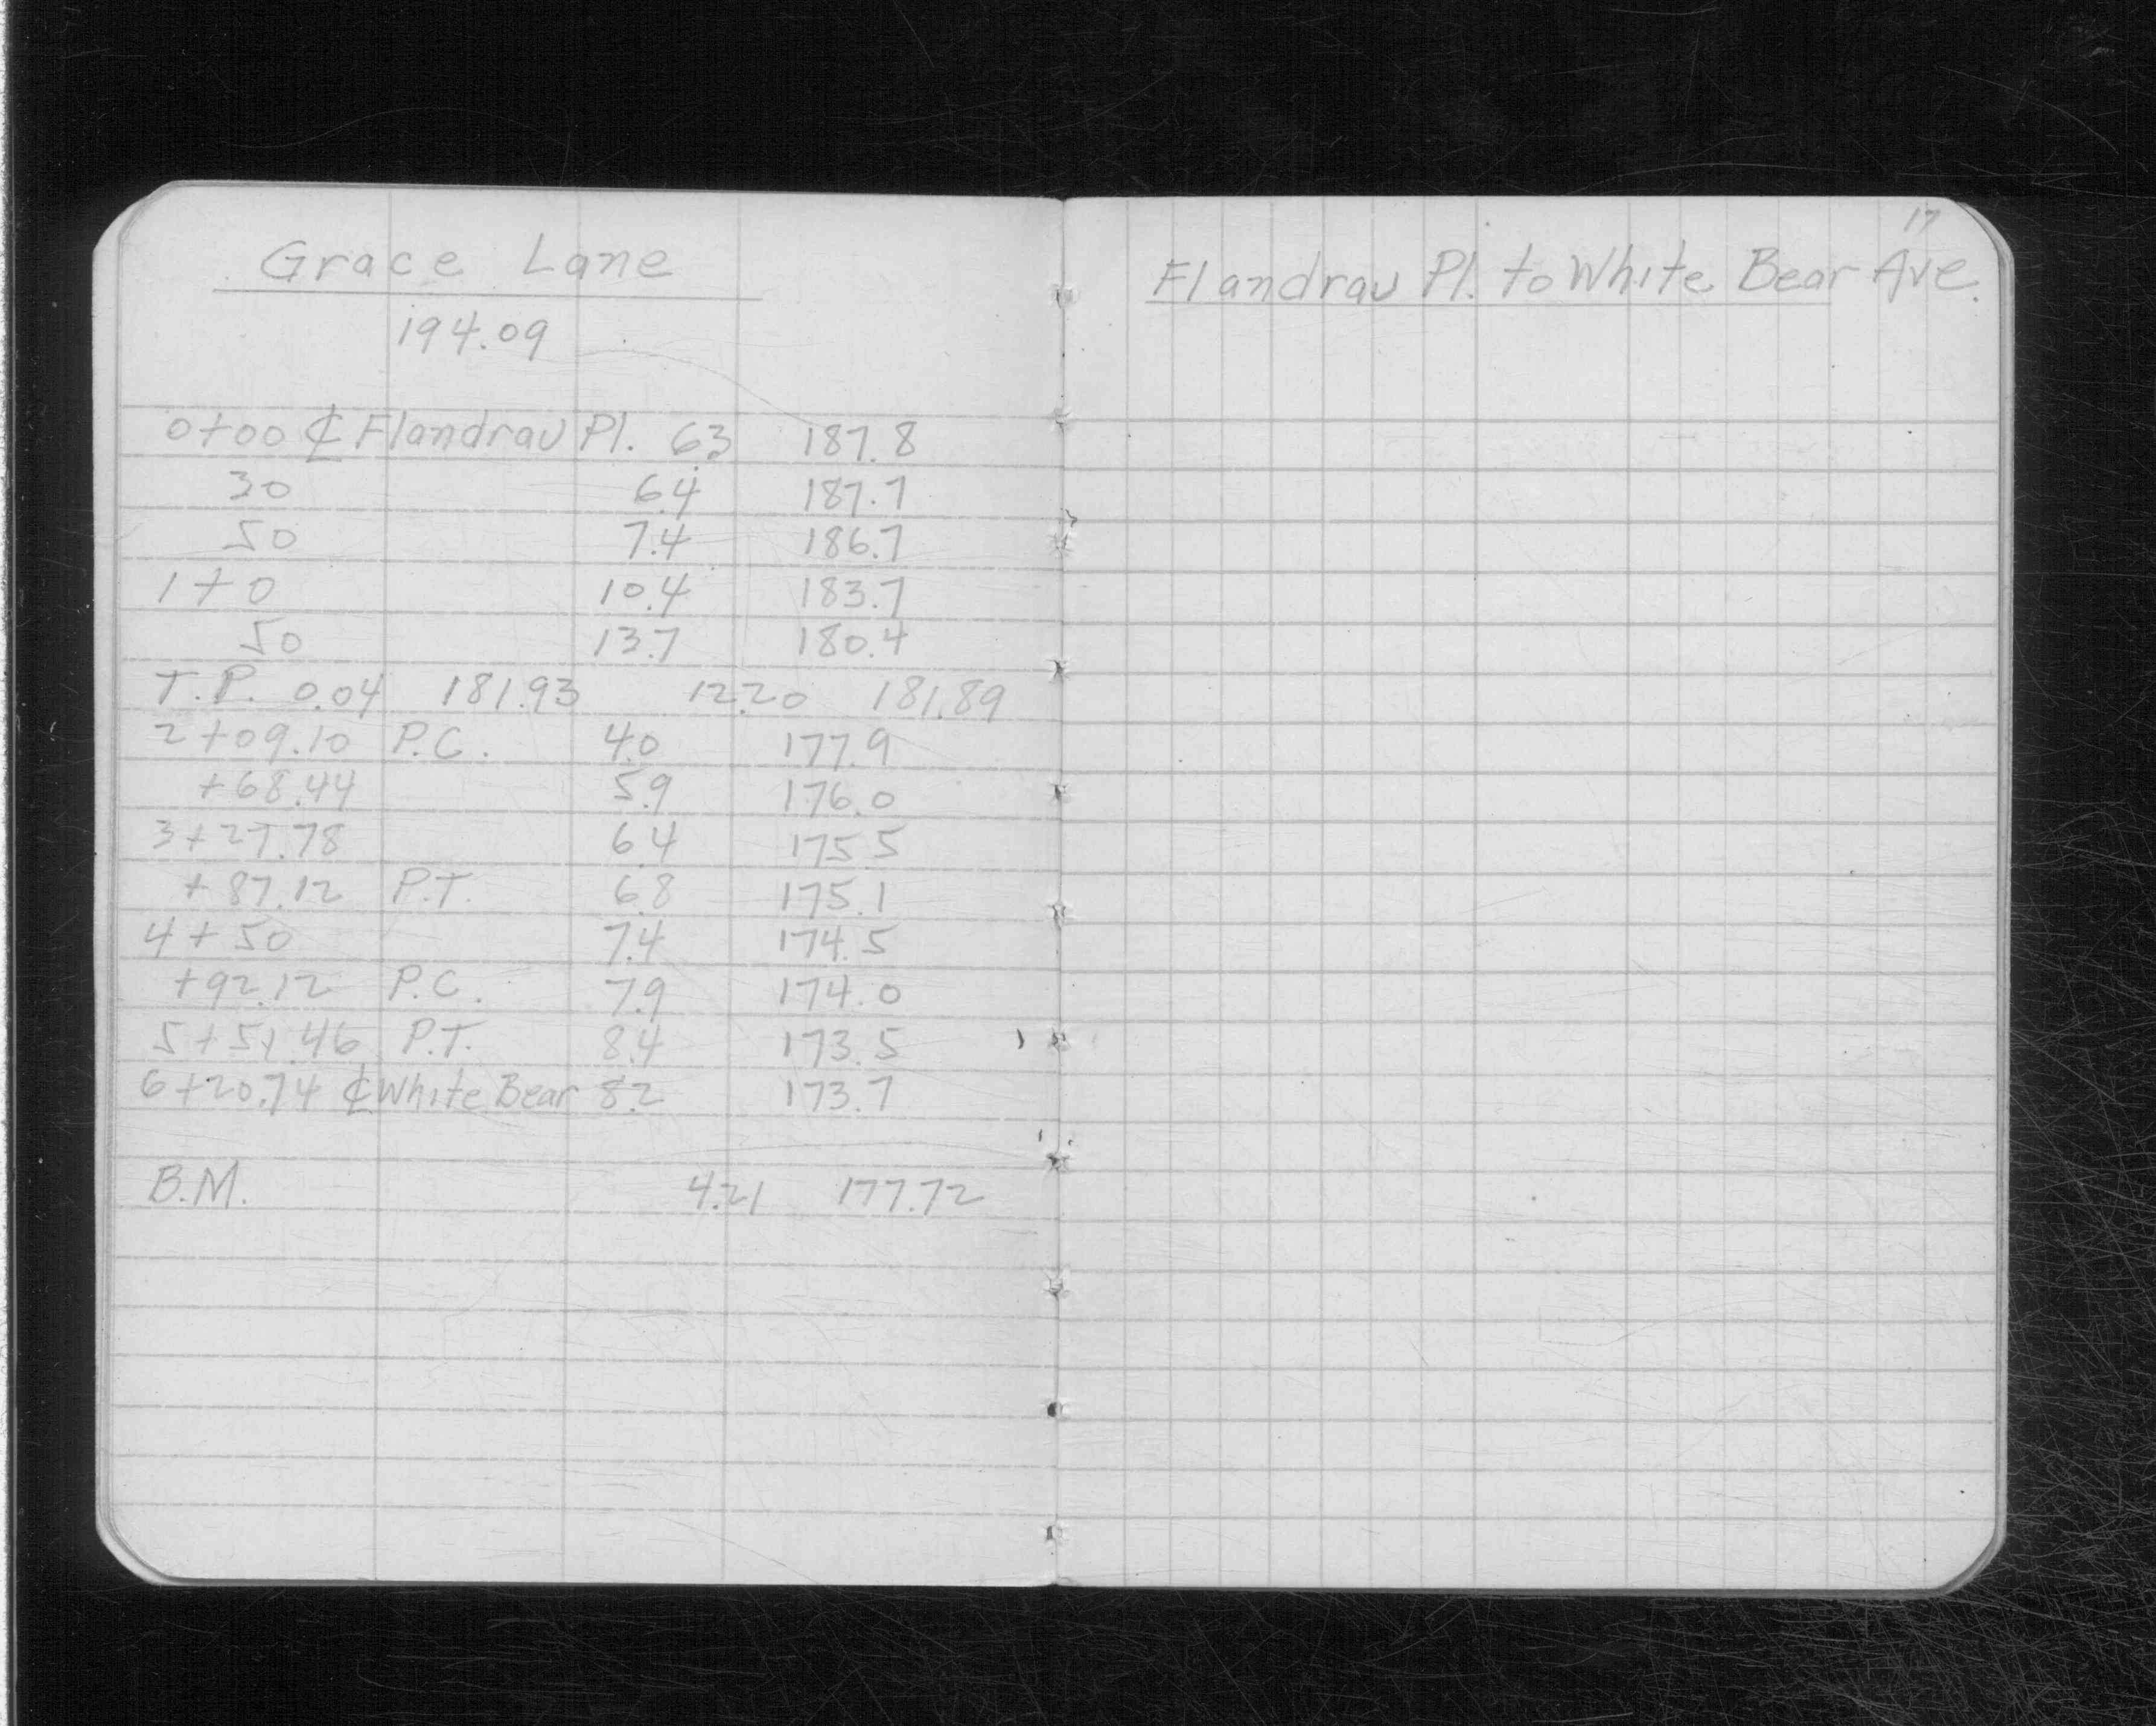 Grace Lane
194.09
0+00 ℄ Flandrau Pl. 6.3 187.8
30 6.4 187.7
50 7.4 186.7
1+0 10.4 183.7
50 13.7 180.4
T.P. 0.04 181.93 12.20 181.89
2+09.10 P.C. 4.0 177.9
+68.44 5.9 176.0
3+27.78 6.4 175.5
+87.12 P.T. 6.8 175.1
4+50 7.4 174.5
+92.12 P.C. 7.9 174.0
5+51.46 P.T. 8.4 173.5
6+20.74 ℄ White Bear 8.2 173.7
B.M. 4.21 177.72
17
Flandrau Pl. to White Bear Ave.